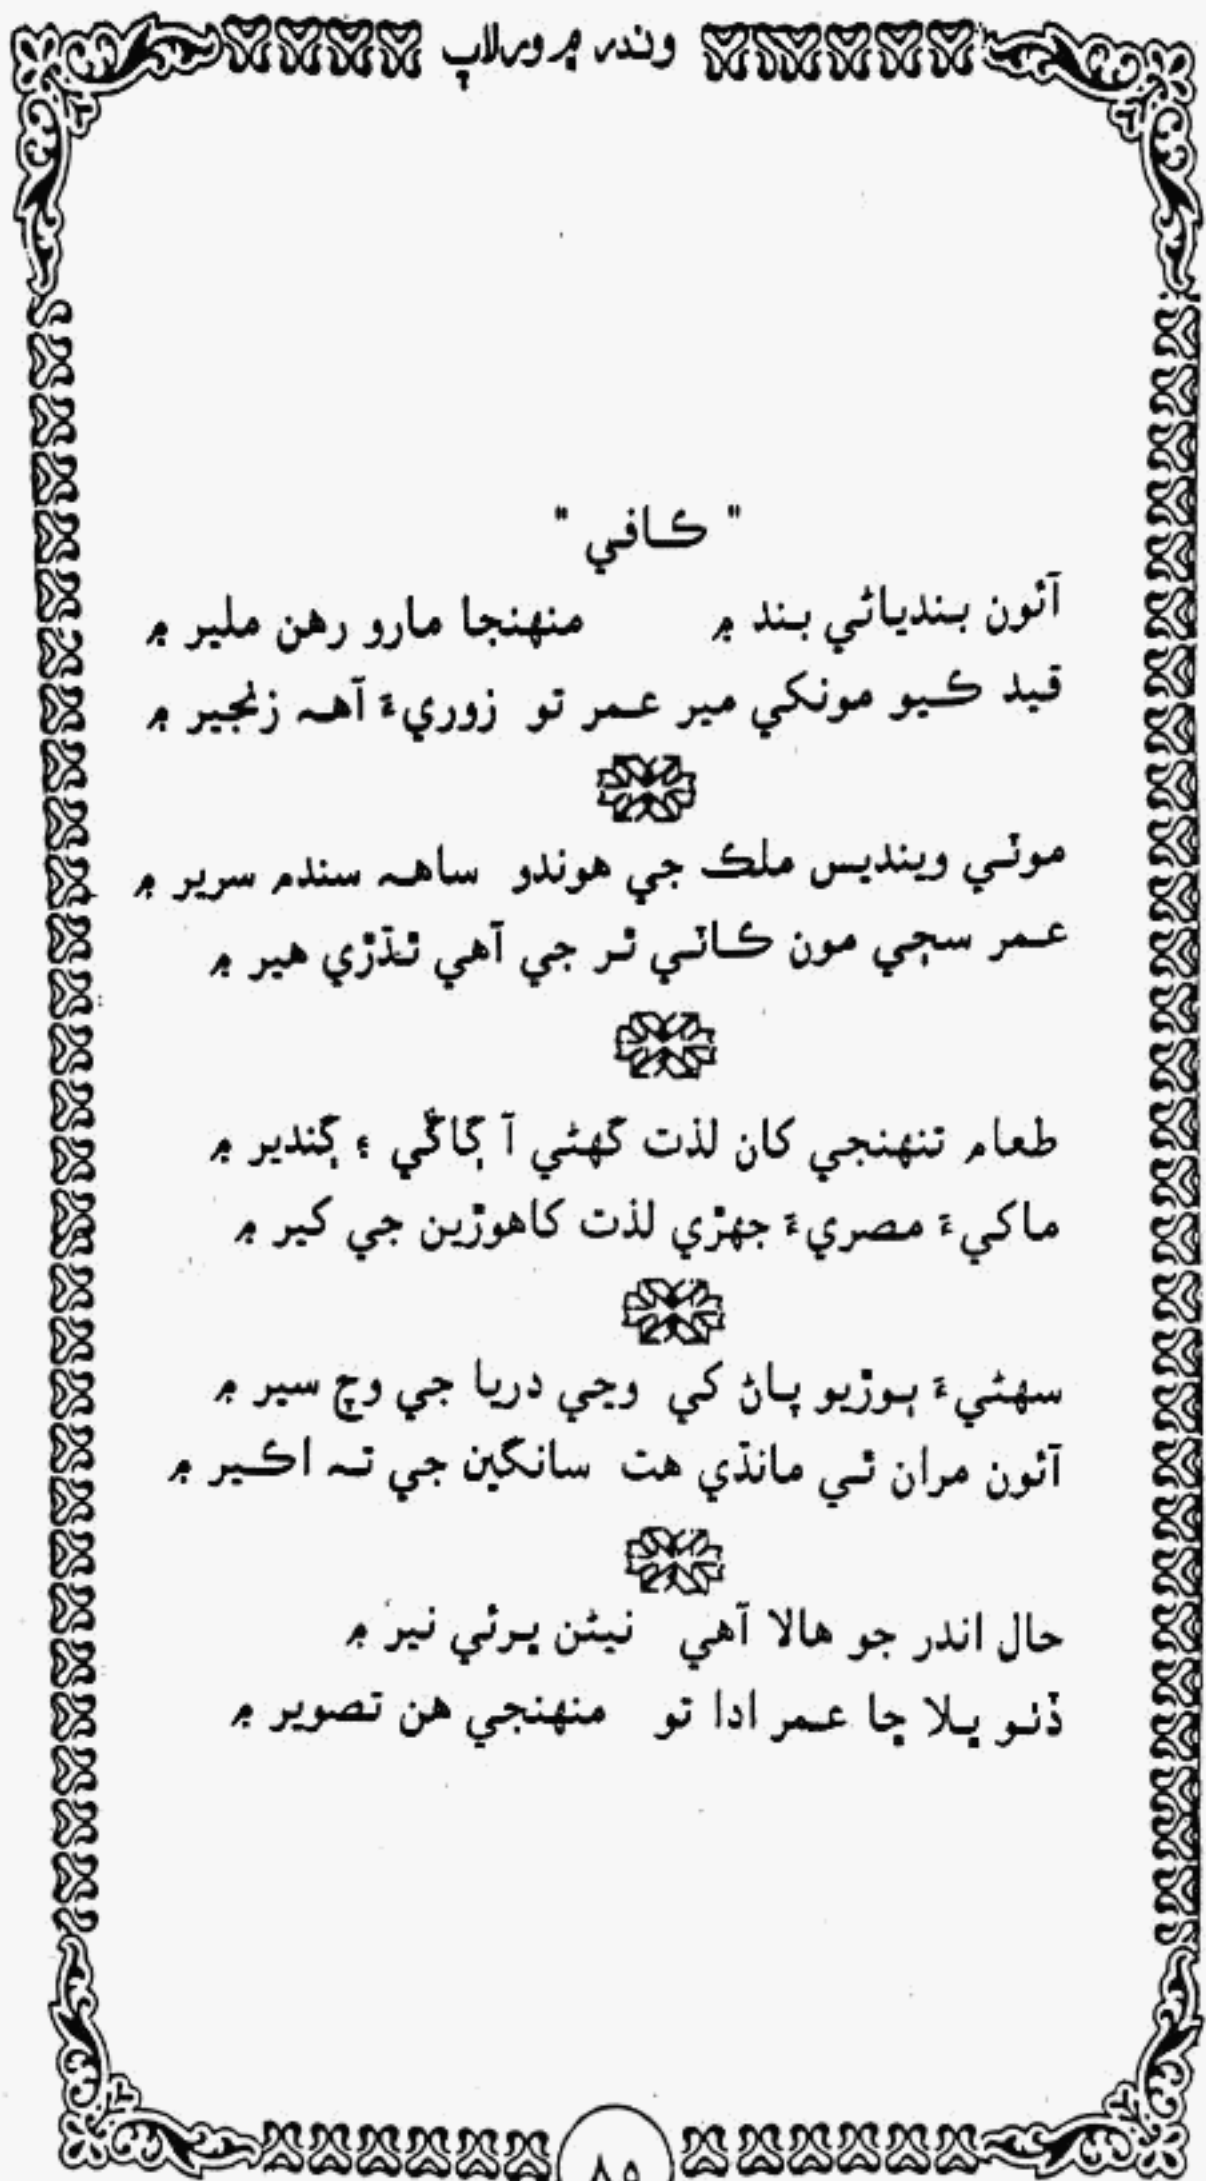 وندر ۾ ورلاپ
" ڪافي "
آئون بندياڻي بند ۾ منهنجا مارو رهن ملير ۾
قيد ڪيو مونکي مير عمر تو زوريءَ آهہ زنجير ۾
موٽي وينديس ملڪ جي هوندو ساهہ سندم سرير ۾
عمر سڄي مون ڪاٽي ٿر جي آهي ٿڌڙي هير ۾
طعام تنهنجي کان لذت گهڻي آ ڳاڱي ۽ ڳنڍير ۾
ماکيءَ مصريءَ جهڙي لذت کاهوڙين جي کير ۾
سهڻيءَ ٻوڙيو پاڻ کي وڃي دريا جي وچ سير ۾
آئون مران ٿي مانڌي هت سانگين جي تہ اڪير ۾
حال اندر جو هالا آهي نيڻن ڀرئي نير ۾
ڏٺو ڀلا ڇا عمر ادا تو منهنجي هن تصوير ۾